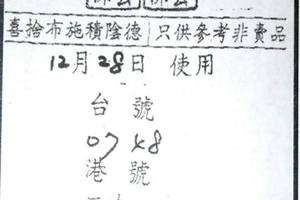 喜捨布施積陰德 只供參考非賣品
12月28日 使用
台號
0748
港號